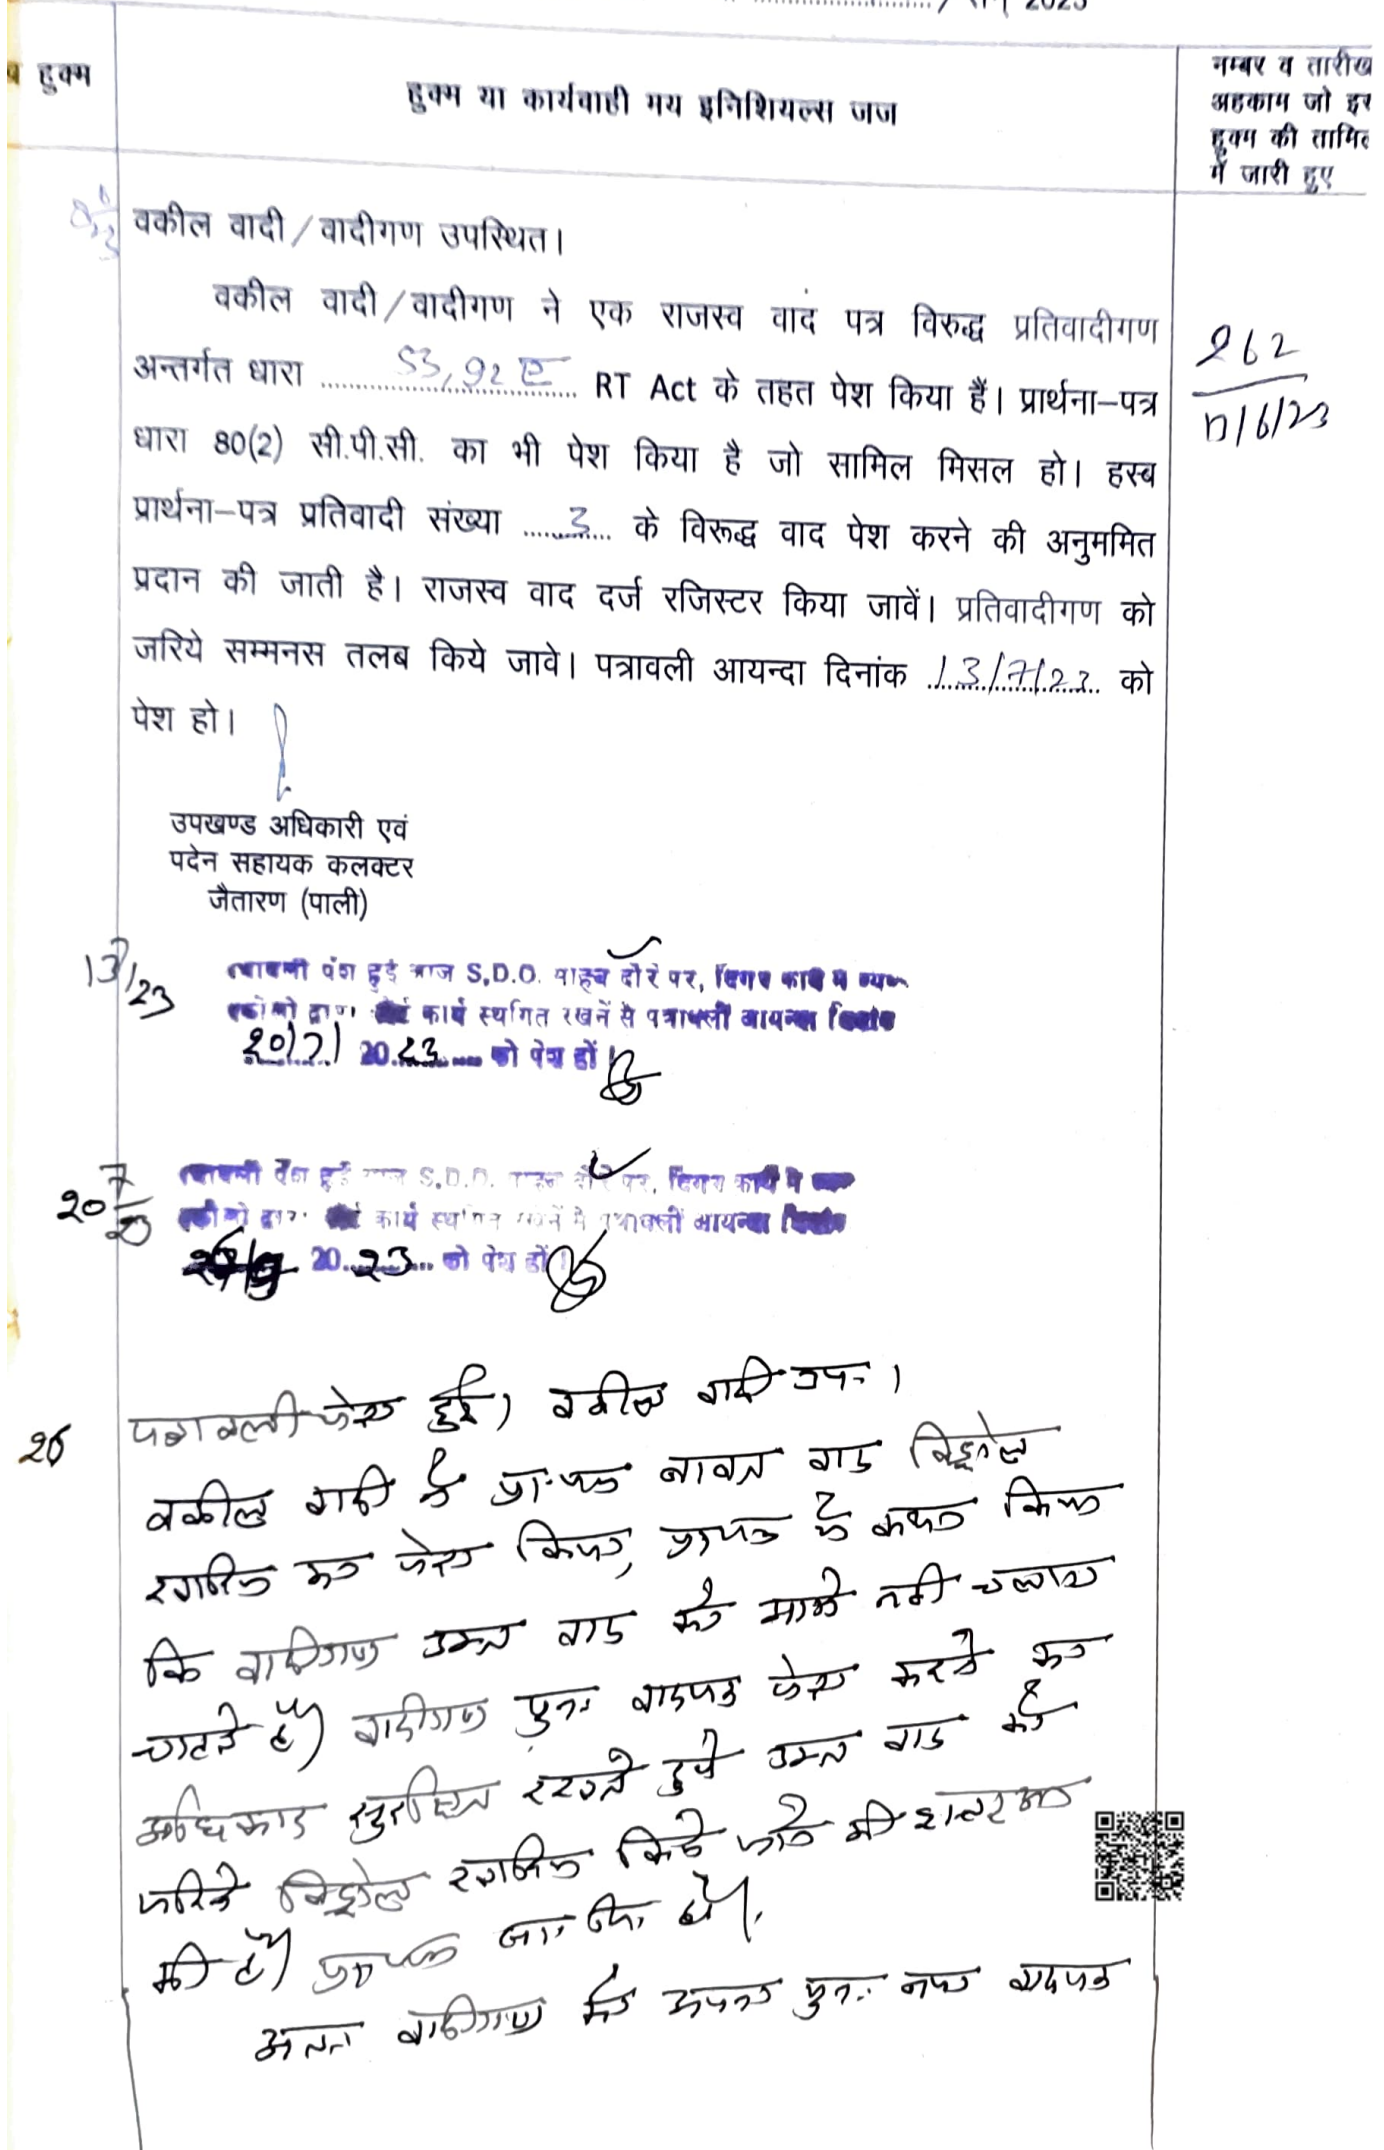 2023
हुक्म
हुक्म या कार्यवाही मय इनिशियल्स जज
नम्बर व तारीख
अहकाम जो इस
हुक्म की तामिल
में जारी हुए
वकील वादी/वादीगण उपस्थित।
वकील वादी/वादीगण ने एक राजस्व वाद पत्र विरुद्ध प्रतिवादीगण
अन्तर्गत धारा 53,92 ए RT Act के तहत पेश किया हैं। प्रार्थना-पत्र
धारा 80(2) सी.पी.सी. का भी पेश किया है जो सामिल मिसल हो। हस्ब
प्रार्थना-पत्र प्रतिवादी संख्या ......3.... के विरूद्ध वाद पेश करने की अनुममित
प्रदान की जाती है। राजस्व वाद दर्ज रजिस्टर किया जावें। प्रतिवादीगण को
जरिये सम्मनस तलब किये जावे। पत्रावली आयन्दा दिनांक 13/7/23 को
पेश हो।
262
/6/23
उपखण्ड अधिकारी एवं
पदेन सहायक कलक्टर
जैतारण (पाली)
13/7/23
पेश हुई आज S.D.O. साहब दौरे पर, दिगर कार्य में
कार्य स्थगित रखनें से पत्रावली आयन्दा दिनांक
20/7/ 20.23 को पेश हों।
20 7/23
पेश हुई आज S.D.O. साहब दौरे पर, दिगर कार्य में
कार्य स्थगित रखनें से पत्रावली आयन्दा दिनांक
20 23 को पेश हों।
26
पत्रावली पेश हुई। वकील वादी उप.।
वकील वादी ने प्रा.पत्र बाबत वाद विड्रोल
खारिज का पेश किया, प्रा.पत्र में कथन किया
कि वादीगण उक्त वाद को आगे नहीं चलाना
चाहते हैं। वादीगण पुनः वादपत्र पेश करने का
अधिकार सुरक्षित रखते हुये उक्त वाद को
जरिये विड्रोल खारिज किये जाने की
की हैं। प्रा.पत्र शा.मि. हो।
अतः वादीगण को अपना पुनः नया वादपत्र